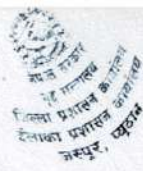 नेपाल सरकार
गृह मन्त्रालय
जिल्ला प्रशासन कार्यालय
ईलाका प्रशासन कार्यालय
जसपुर, प्यूठान